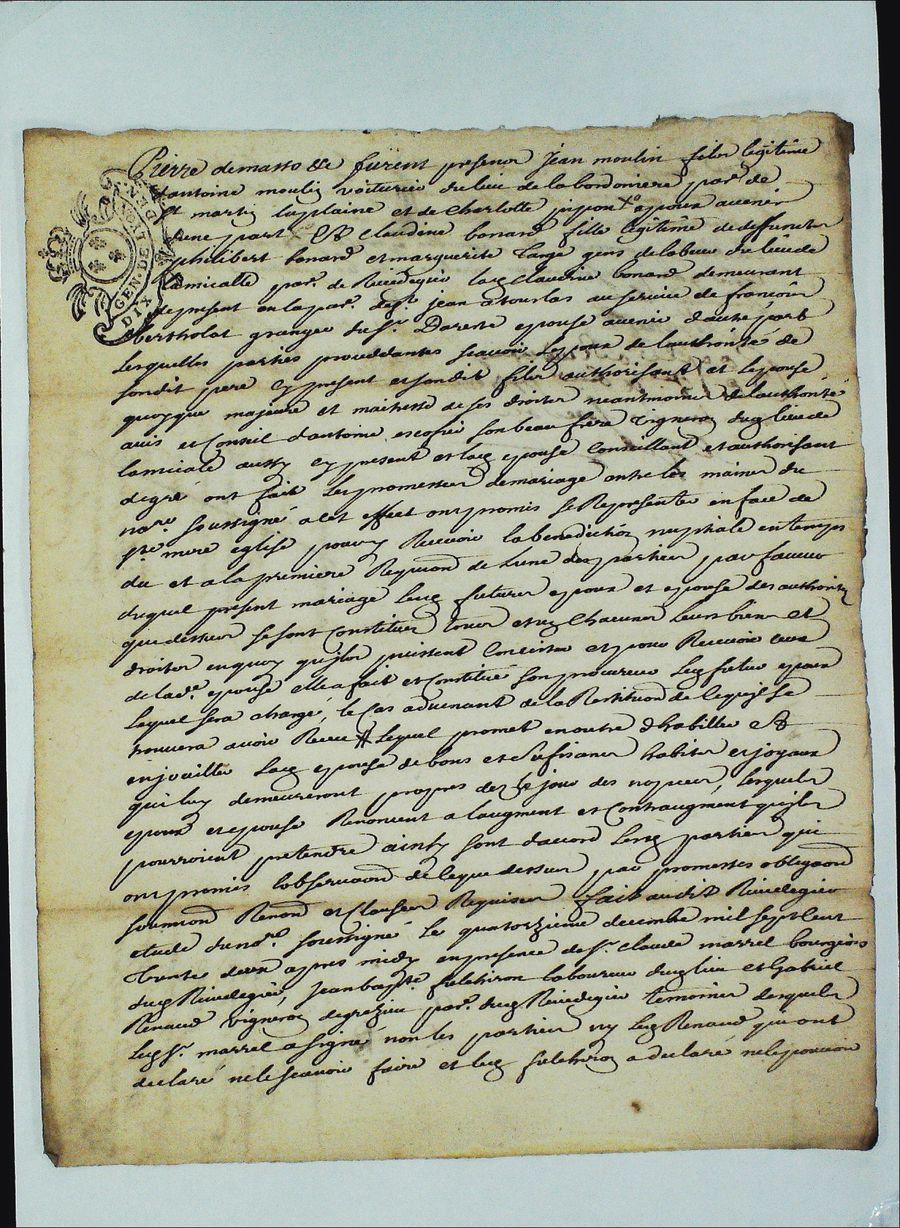 Pierre demasso &c furent presens jean moulin fils legitime
d'antoine moulin voiturier du lieu de la bordoniere par.e de
St martin laplaine et de Charlotte pipon Xe epoux avenir
dune part & Claudine bonard fille legitime de deffuncts
philibert bonard et marguerite Large gens de labeur du lieu de
Lamicalle par.e de Rivedegier lad Claudine bonard demeurant
de present en la par.e de St jean a touslas au service de françois
bertholat granger du Sr Dareste epouse avenir d'autre part
Lesquelles parties proceddantes scavoir Lepoux de lauthorité de
sondit pere cy present et sondit fils authorisant et Lepouse
quoyque majeure et maitresse de ses droits neantmoins de lauthorité
avis et Conseil d'antoine escofier son beau frere vigneron dud lieu de
lamicale aussy cy present et lad epouse Conseillant et authorisant
de gré ont fait Les promesses de mariage entre les mains du
no.re soussigné a cet effect ont promis se Representer en face de
s.te mere eglise pour y Recevoir la benediction nuptiale en temps
du et a la premiere Requisi.on de Lune des parties par faveur
duquel present mariage lesd futurs epoux et epouse des authorités
que dessus se sont Constitues tous et ung Chacuns Leurs biens et
droits en quoy quils puissent Consister et pour Recevoir ceux
de lad.e epouse elle a fait et Constitué son procureur Led futur epoux
lequel sera chargé, le Cas advenant de la Restitution de ce quil se
trouvera avoir Receu # Lequel promet en outre d'habiller &
enjoailler Lad epouse de bons et suffisans habits et joyaux
qui luy demeureront propres des le jour des nopces, lesquels
epoux et epouse Renoncent a laugment et Contraugment quils
pourroient pretendre ainsy sont d'accord Lesd parties qui
ont promis l'observaon de ce que dessus par promesses obligaon
soumion Renon et Clauses Requises fait audit Rivedegier
etude du no.re soussigné Le quatorzieme decembre mil sept Cent
trente deux apres midy en presence de Sr Claude marrel bourgeois
dud Rivedegier, jean bap.te feletiron laboureur dud lieu et Gabriel
Renaud vigneron de grezieu par.e dud Rivedegier temoins desquels
Led Sr marrel a signé non les parties ny Led Renaud qui ont
declaré ne le scavoir faire et led feletiron a declaré ne le pouvoir
GEN. DE LYON
DIX DEN